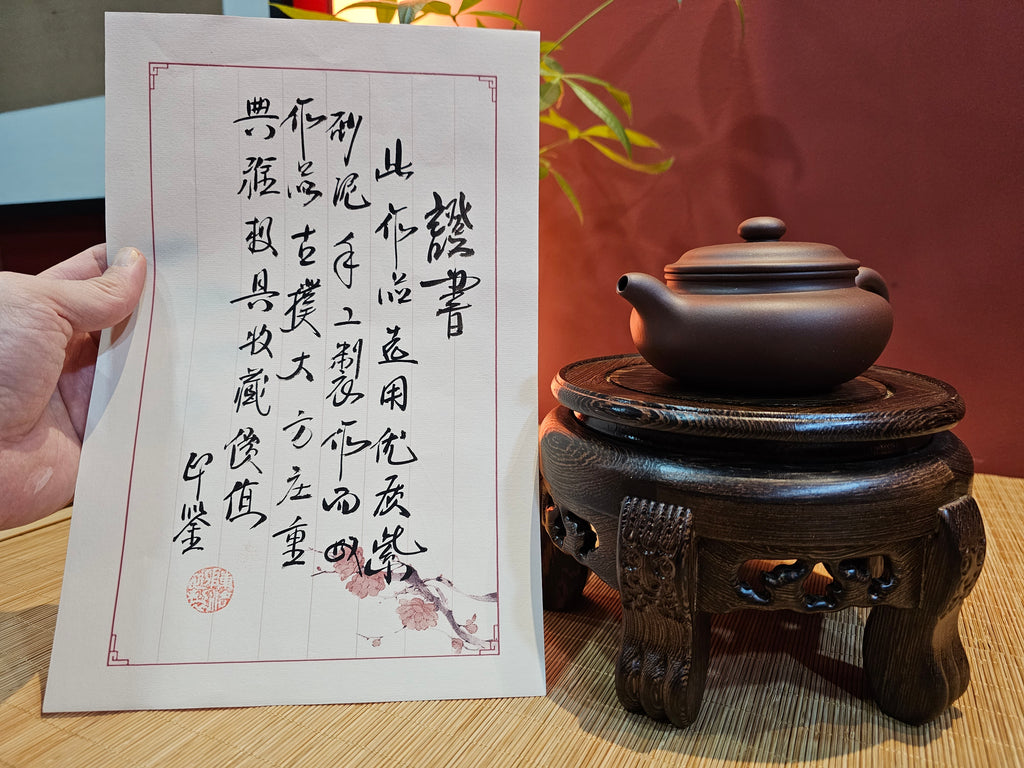 證書
此作品选用优质紫
砂泥手工製作而成
作品古樸大方庄重
典雅极具收藏價值
印鑒